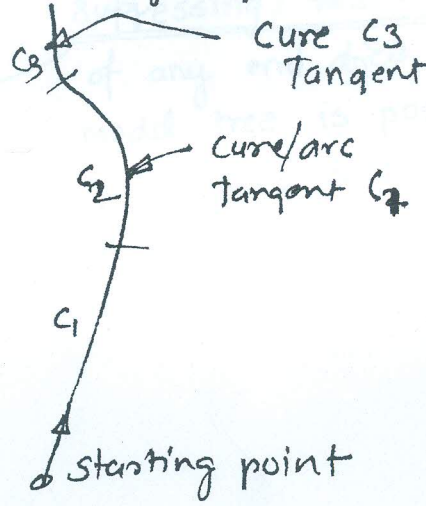 Cure C3
Tangent
C3
Curve/arc
tangent C2
C2
C1
starting point